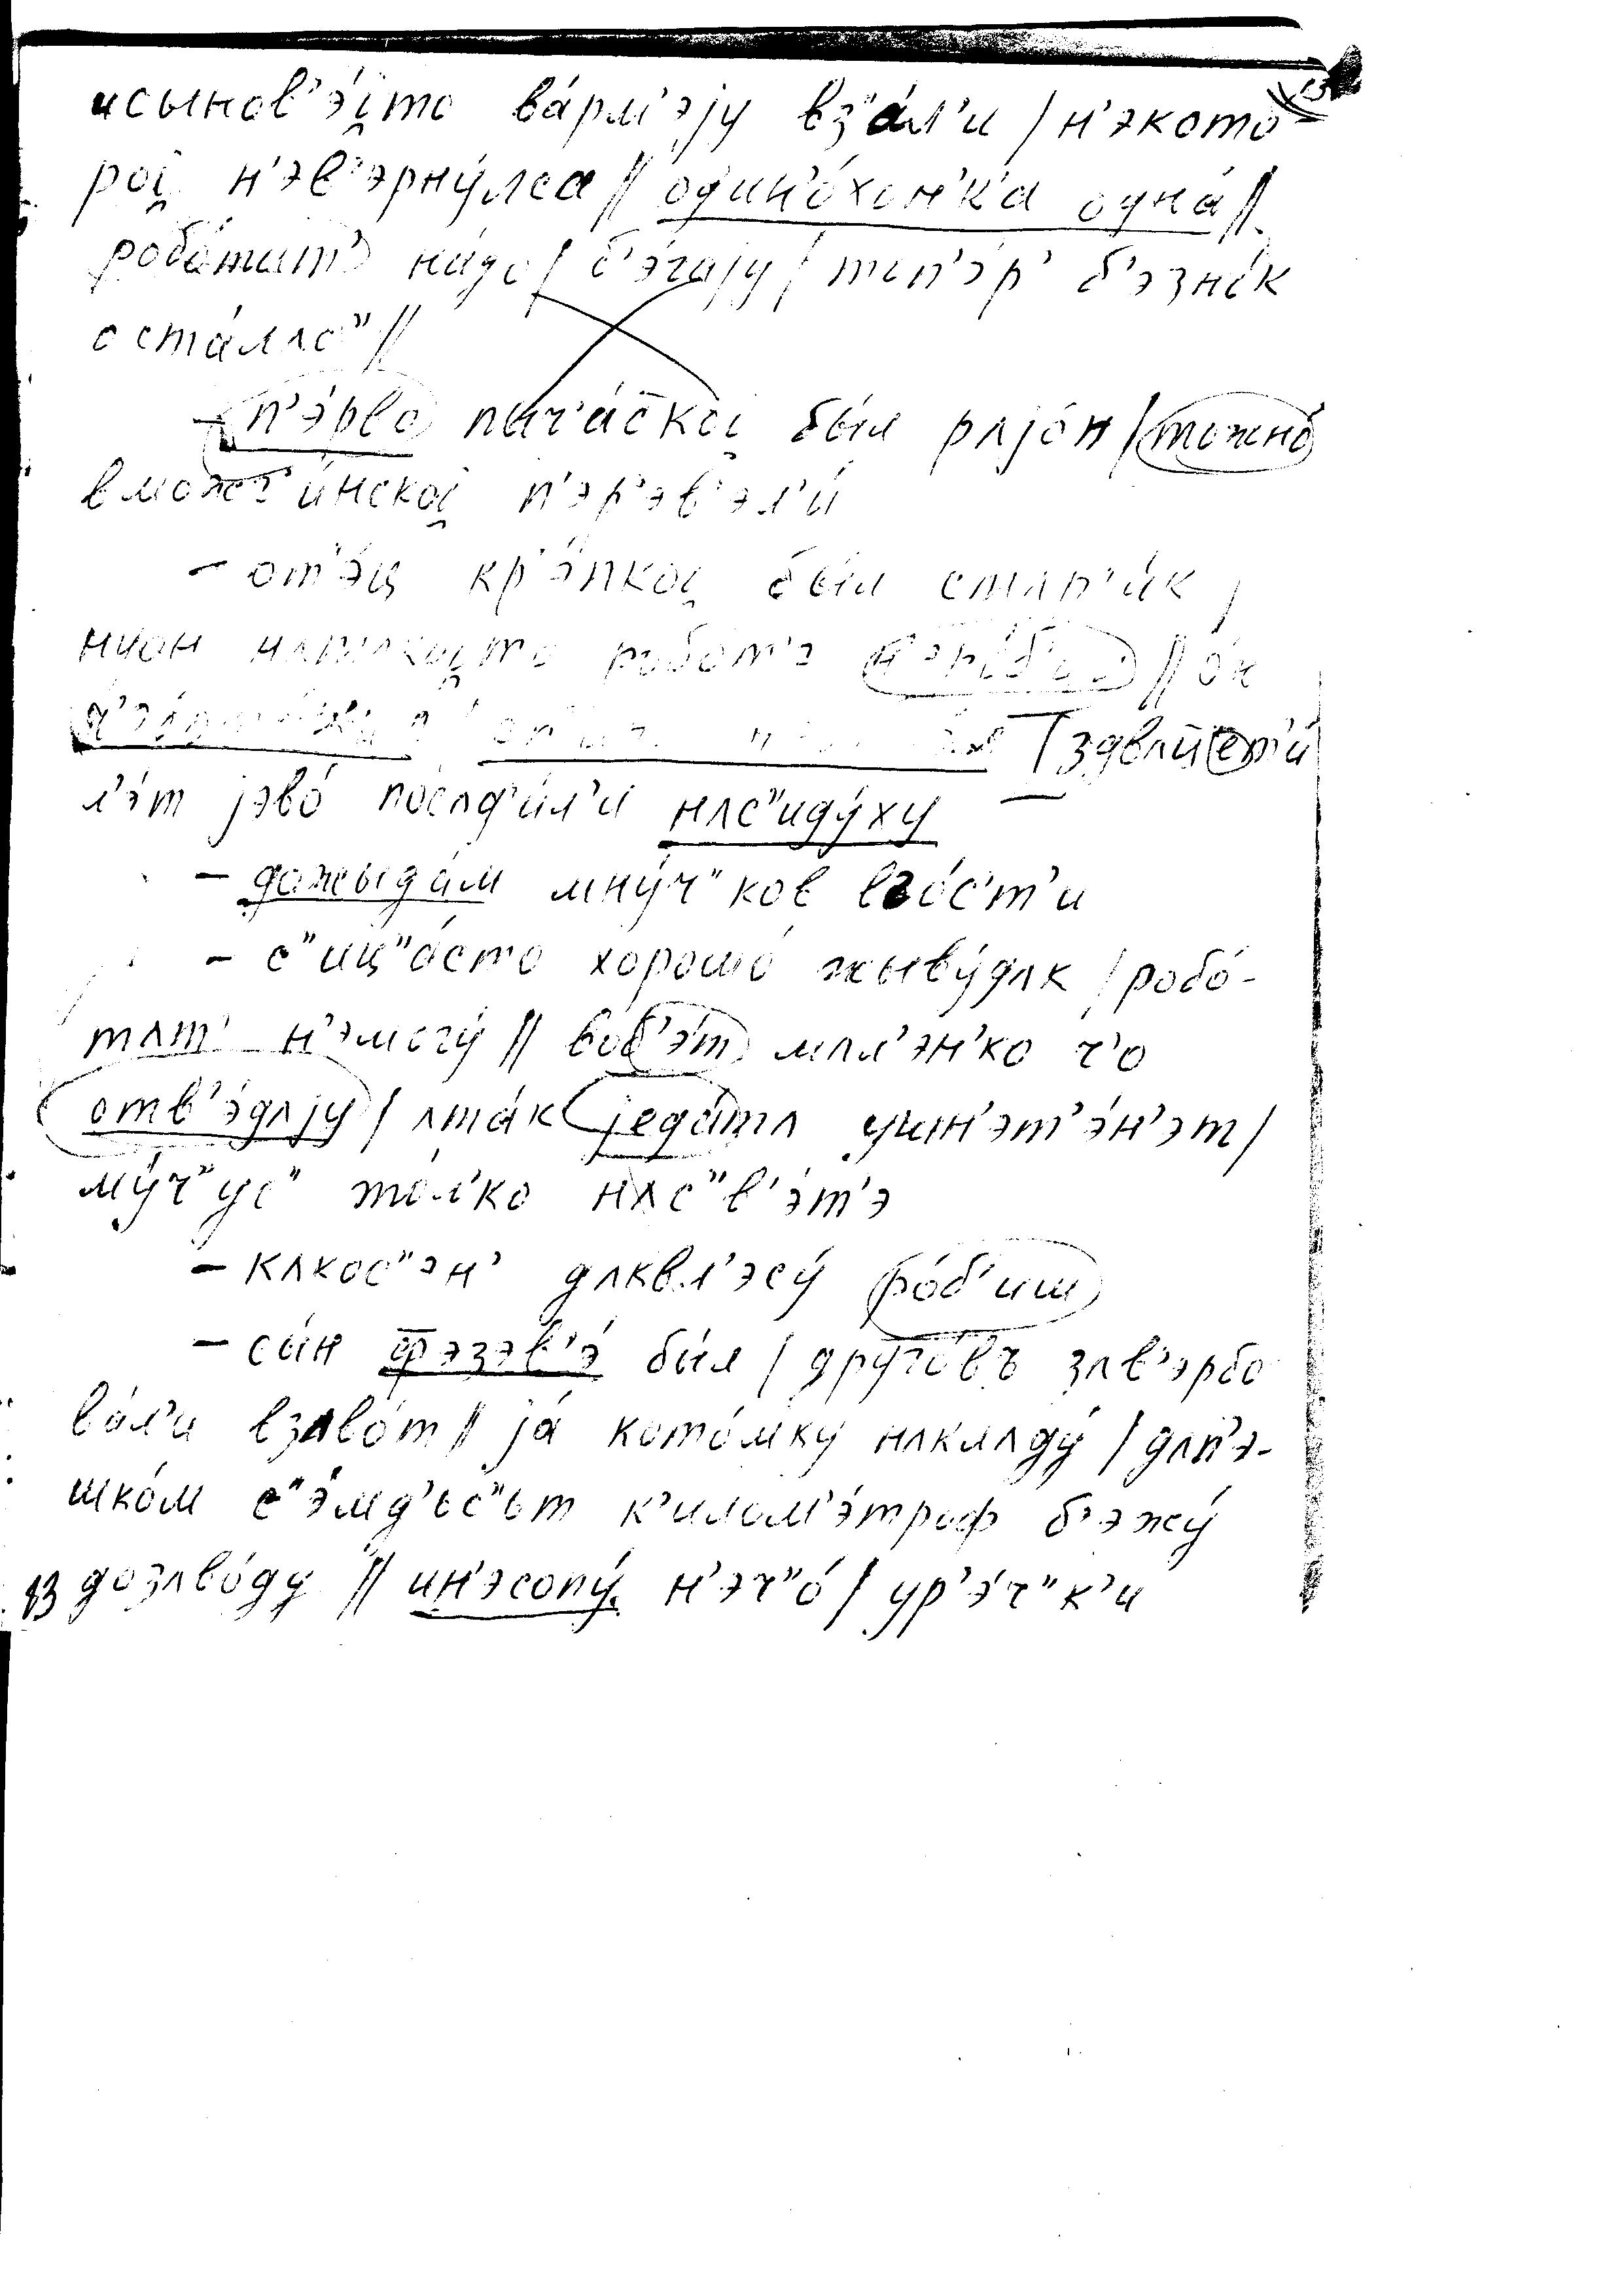 исынов’э́i̯то ва́рм’эjу вз’а́л’и / н’экото́
роi̯ н’эв’эрну́лса // один’о́хон’к’а одна́ //
робо́тит’ на́до / б’э́гаjу / т’эп’э́р’ б’эзно́к
оста́ллс” //
– п’э́рво пыч’а́скоi̯ бы́л рлjо́н / тожно́
вможг’и́нскоi̯ п’эр’эв’эл’и́
– от’э́ц кр’э́пкоi̯ бы́л стлр’и́к /
нион робо́т’э // о́н
здвлц:ет’и́
л’э́т jэво́ послд’и́л’и нлс”иду́ху
– дожыда́м мну́ч”ков вго́с’т’и
– с”иц”а́сто хорошо́ жыву́длк / робо́-
тлт’ н’эмогу́ // воб’э́т мал’эн’ко ч’о
отв’э́длjу / лта́к jеда́тл ушн’эт’э́н’эт /
му́ч”ус” то́л’ко нлс”в’э́т’э
– клкос”эн’ длквл’эсу́ ро́б’иш
– сы́н фэзэв’э́ бы́л / друго́въ злв’эрбо
ва́л’и взлво́т // jа́ кото́мку нлклду́ / длп’э-
шко́м с”э́мд’ьс”ьт к’илом’э́троф б’эжу́
дозлво́ду // ин’эсопу́ н’эч”о́ / ур’э́ч”к’и